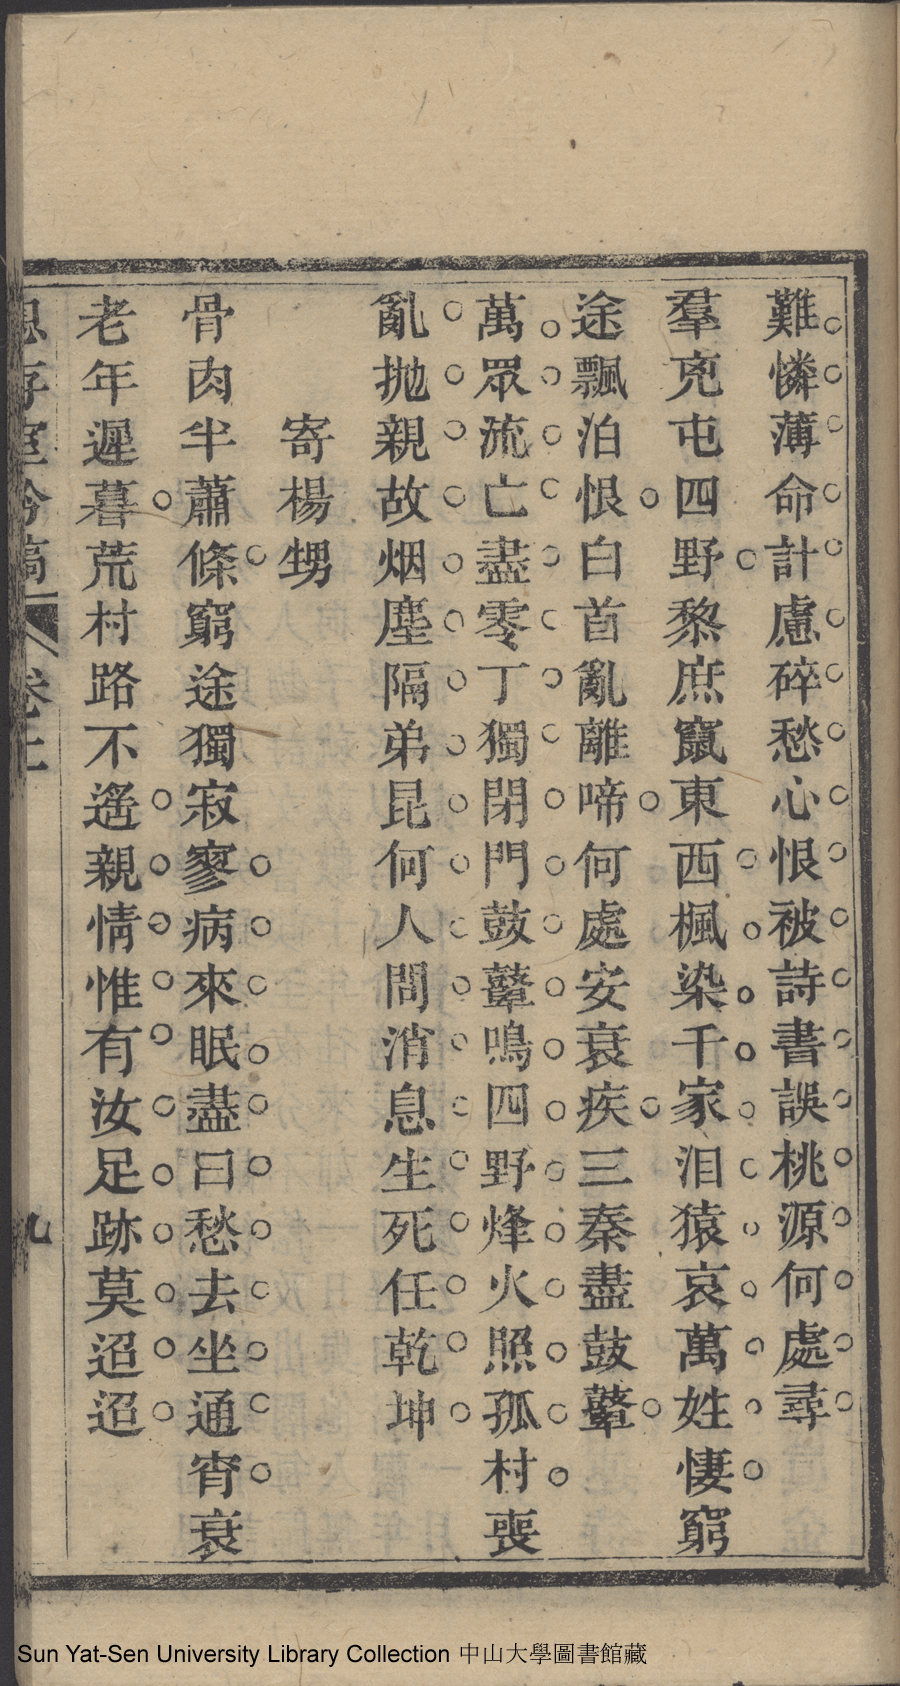 難憐薄命計慮碎愁心恨被詩書誤桃源何處尋
羣兇屯四野黎庶竄東西楓染千家泪猿哀萬姓悽窮
途飄泊恨白首亂離啼何處安衰疾三秦盡鼓鼙
萬眾流亡盡零丁獨閉門鼓鼙鳴四野烽火照孤村喪
亂拋親故烟塵隔弟昆何人問消息生死任乾坤
寄楊甥
骨肉半蕭條窮途獨寂寥病來眠盡日愁去坐通宵衰
老年遲暮荒村路不遙親情惟有汝足跡莫迢迢
思存室吟稿 卷上 九
Sun Yat-Sen University Library Collection 中山大學圖書館藏